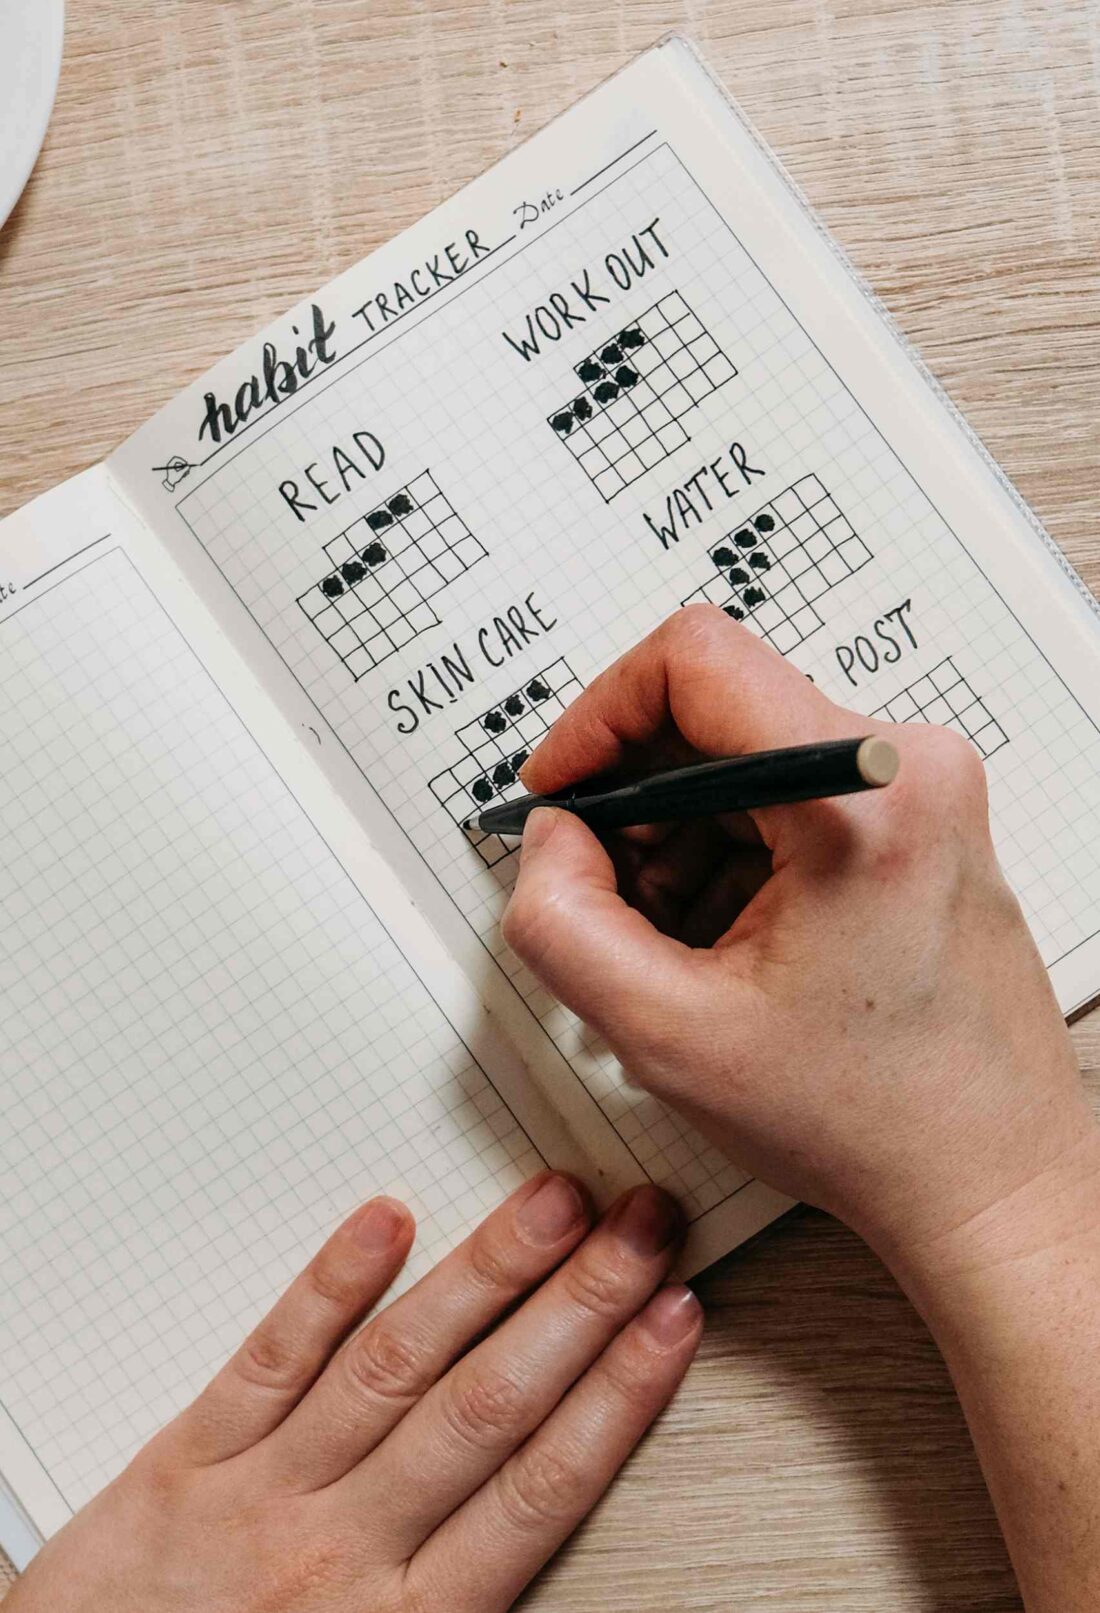 habit TRACKER Date
READ
WORK OUT
SKIN CARE
WATER
POST